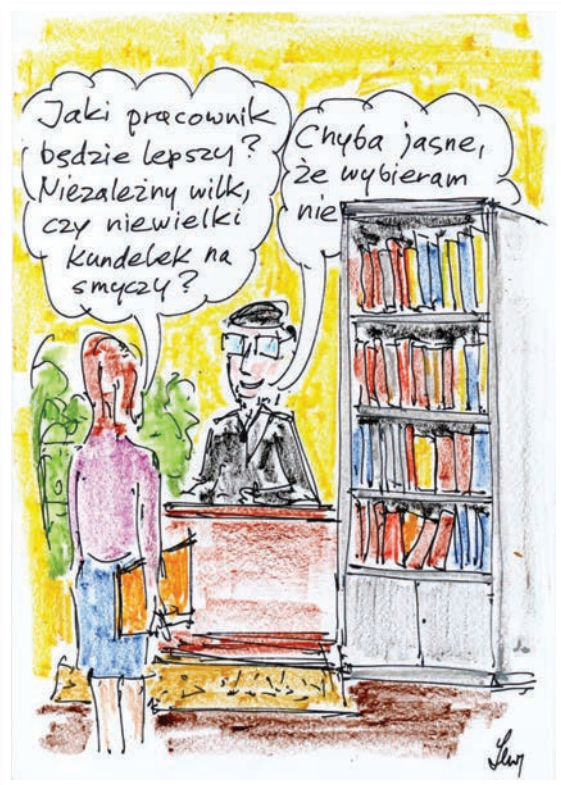 Jaki pracownik
będzie lepszy?
Niezależny wilk,
czy niewielki
kundelek na
smyczy?
Chyba jasne,
że wybieram
nie